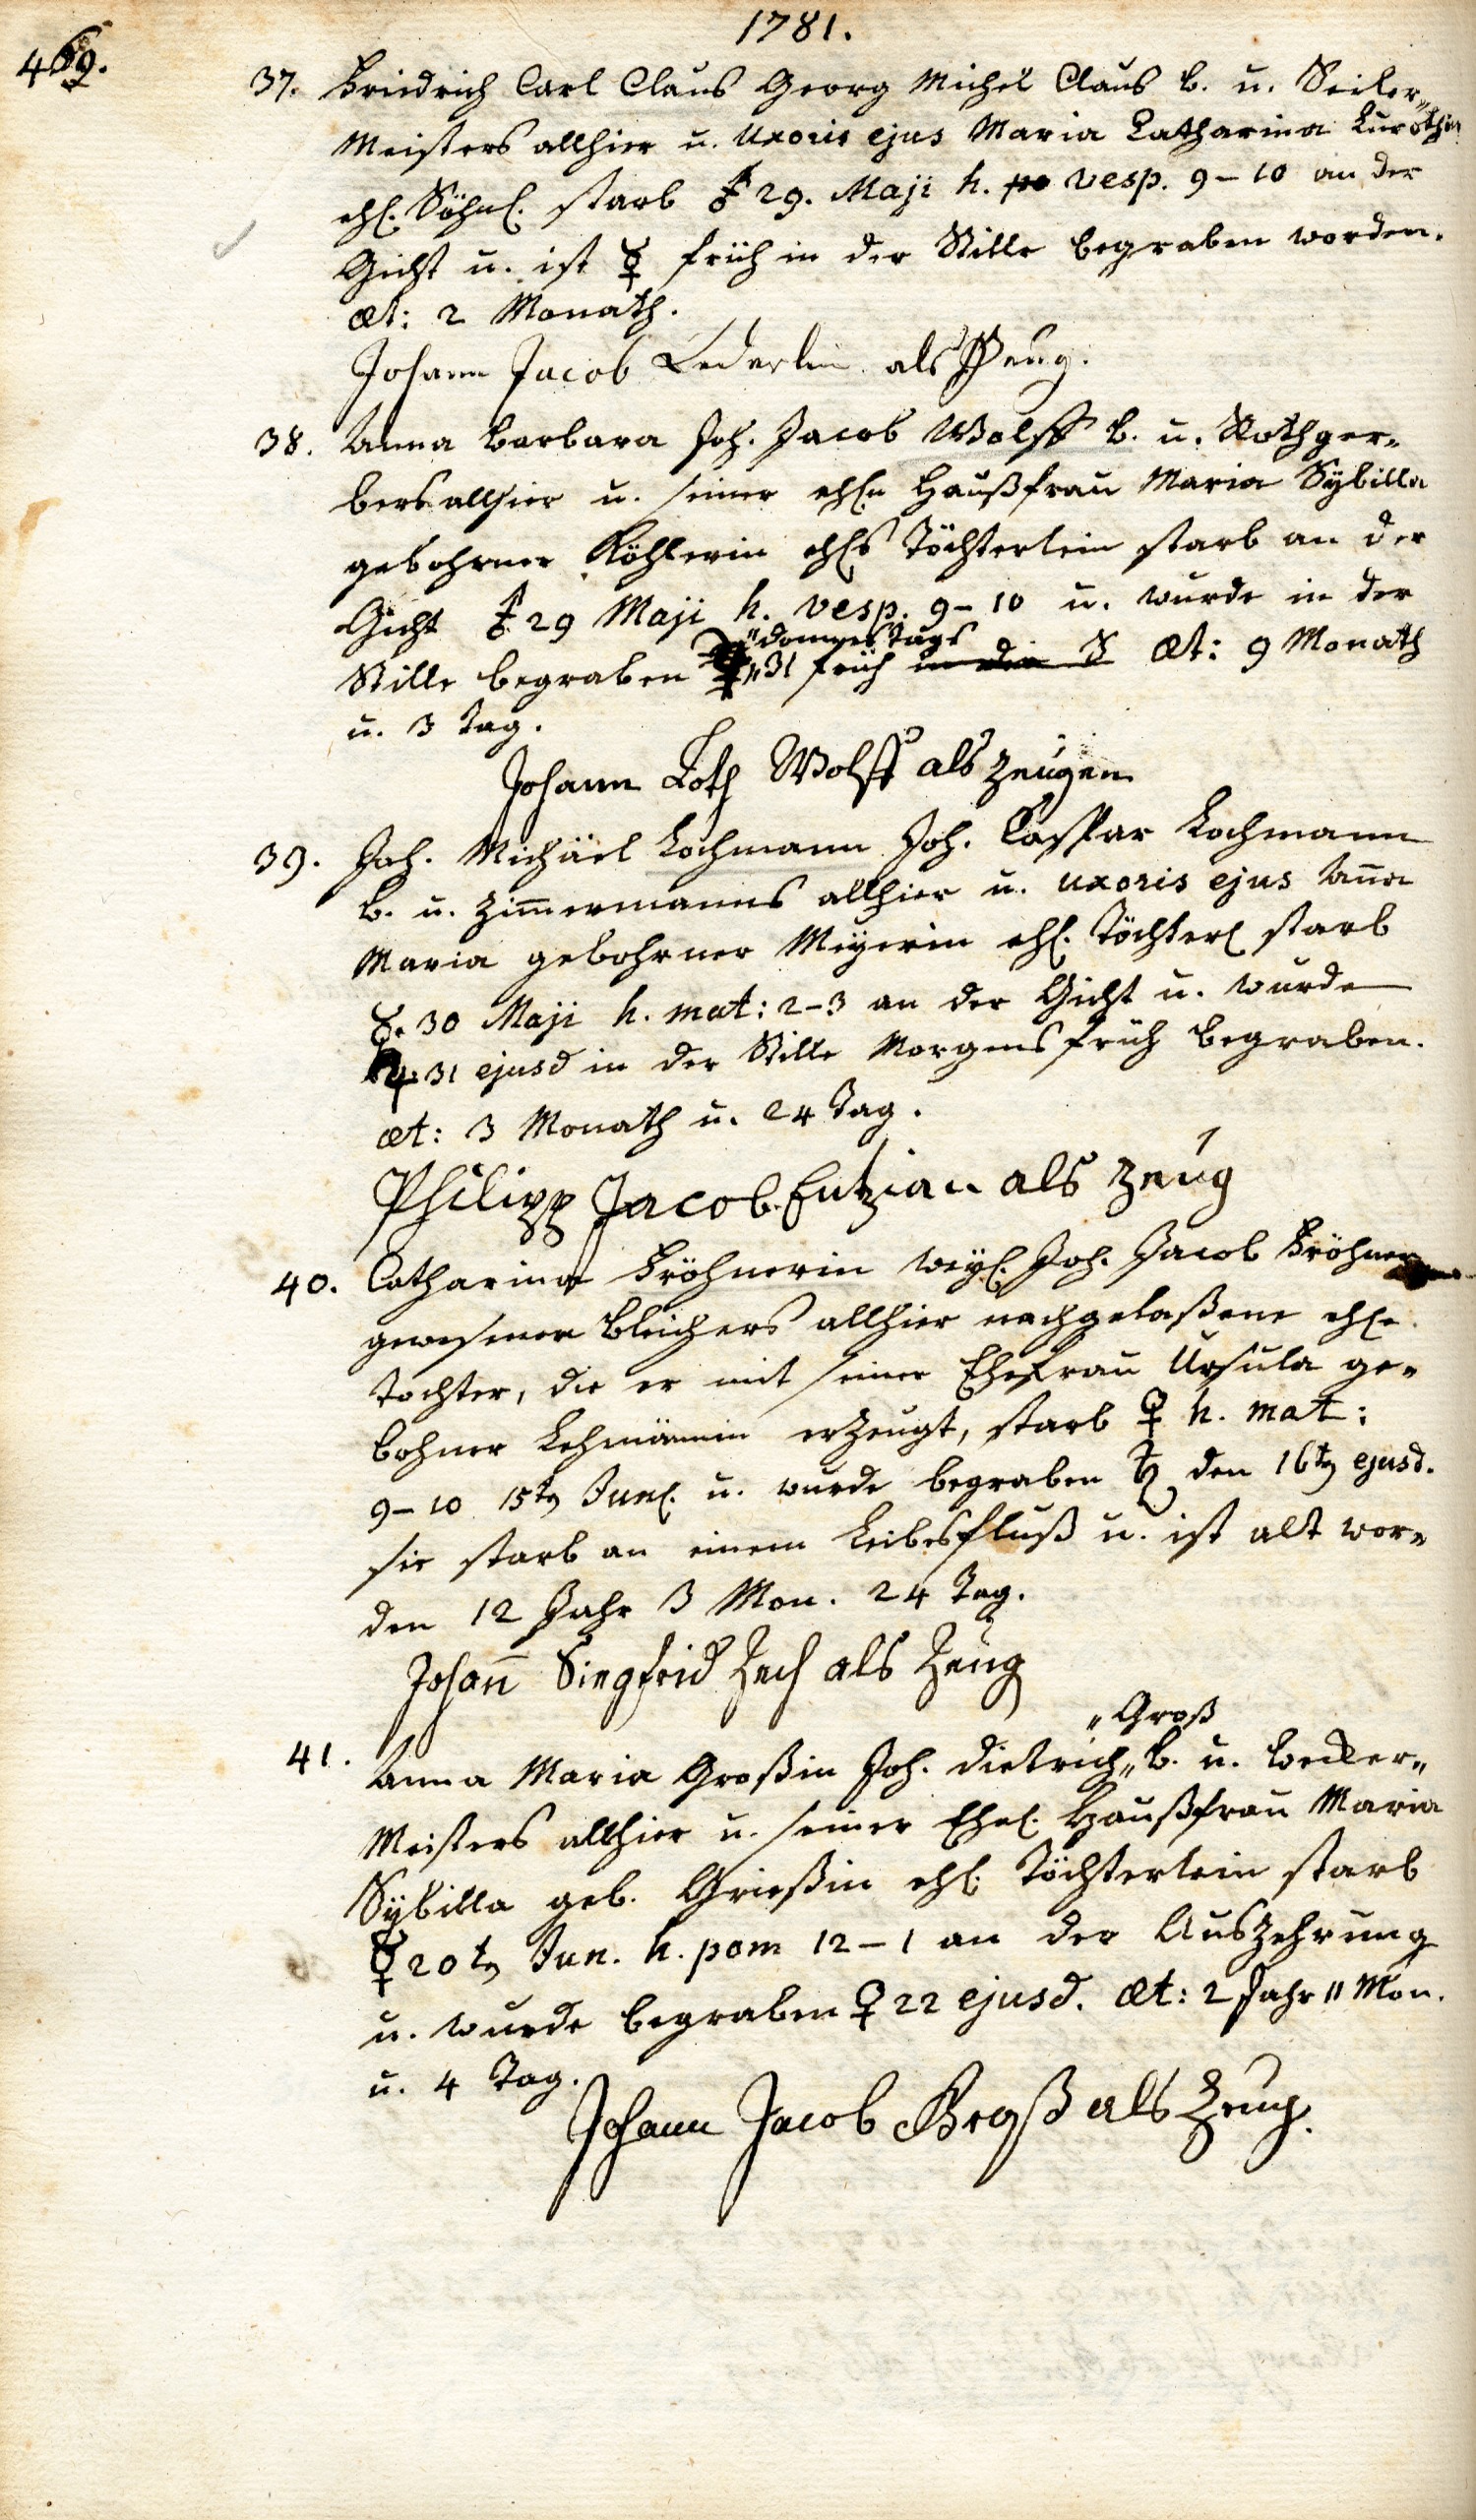 1781.
469.
37. Friedrich Carl Claus Georg Michel Claus b. u. Seiler„
Meisters allhier u. Uxoris ejus Maria Catharina
ehl. Söhnl. starb ♂ 29. Maji h. vesp. 9–10 an der
Gicht u. ist ☿ früh in der Stille begraben worden.
æt: 2 Monath.
Johann Jacob Lederlin als Zeug.
38. Anna Barbara Joh. Jacob Wolff b. u. Rothger„
bers allhier u. seiner ehln Haußfrau Maria Sybilla
gebohrner Köhlerin ehls Töchterlein starb an der
Gicht ♂ 29 Maji h. vesp. 9–10 u. wurde in der
„donnerstags
Stille begraben „31 früh in der S æt: 9 Monath
u. 3 Tag.
Johann Loth Wolff als Zeugen
39. Joh. Michäel Lochmann Joh. Caspar Lochmann
b. u. Zim̄ermanns allhier u. uxoris ejus An̄a
Maria gebohrner Meyerin ehl. Töchterl starb
☿. 30 Maji h. mat: 2–3 an der Gicht u. wurde
♃. 31 ejusd in der Stille Morgens früh begraben.
æt: 3 Monath u. 24 Tag.
Philipp Jacob Entzian als Zeug
40. Catharina Fröhnerin weyl. Joh. Jacob Fröhner
gewesenen Bleichers allhier nachgelaßene ehle.
Tochter, die er mit seiner Ehefrau Ursula ge„
bohner Lehmännin erzeugt, starb ♀ h. mat:
9–10 15ten Junl. u. wurde begraben ♄ den 16ten ejusd.
sie starb an einem Leibesfluß u. ist alt wor„
den 12 Jahr 3 Mon. 24 Tag.
Johan̄ Siegfrid Zech als Zeug
„Groß
41. Anna Maria Großin Joh. Dietrich„ b. u. Becker„
Meisters allhier u. seiner Ehel. Haußfrau Maria
Sybilla geb. Grießin ehl. Töchterlein starb
☿ 20ten Jun. h. pom 12–1 an der Auszehrung
u. wurde begraben ♀ 22 ejusd. æt: 2 Jahr 11 Mon.
u. 4 Tag.
Johann Jacob Groß als Zeug.